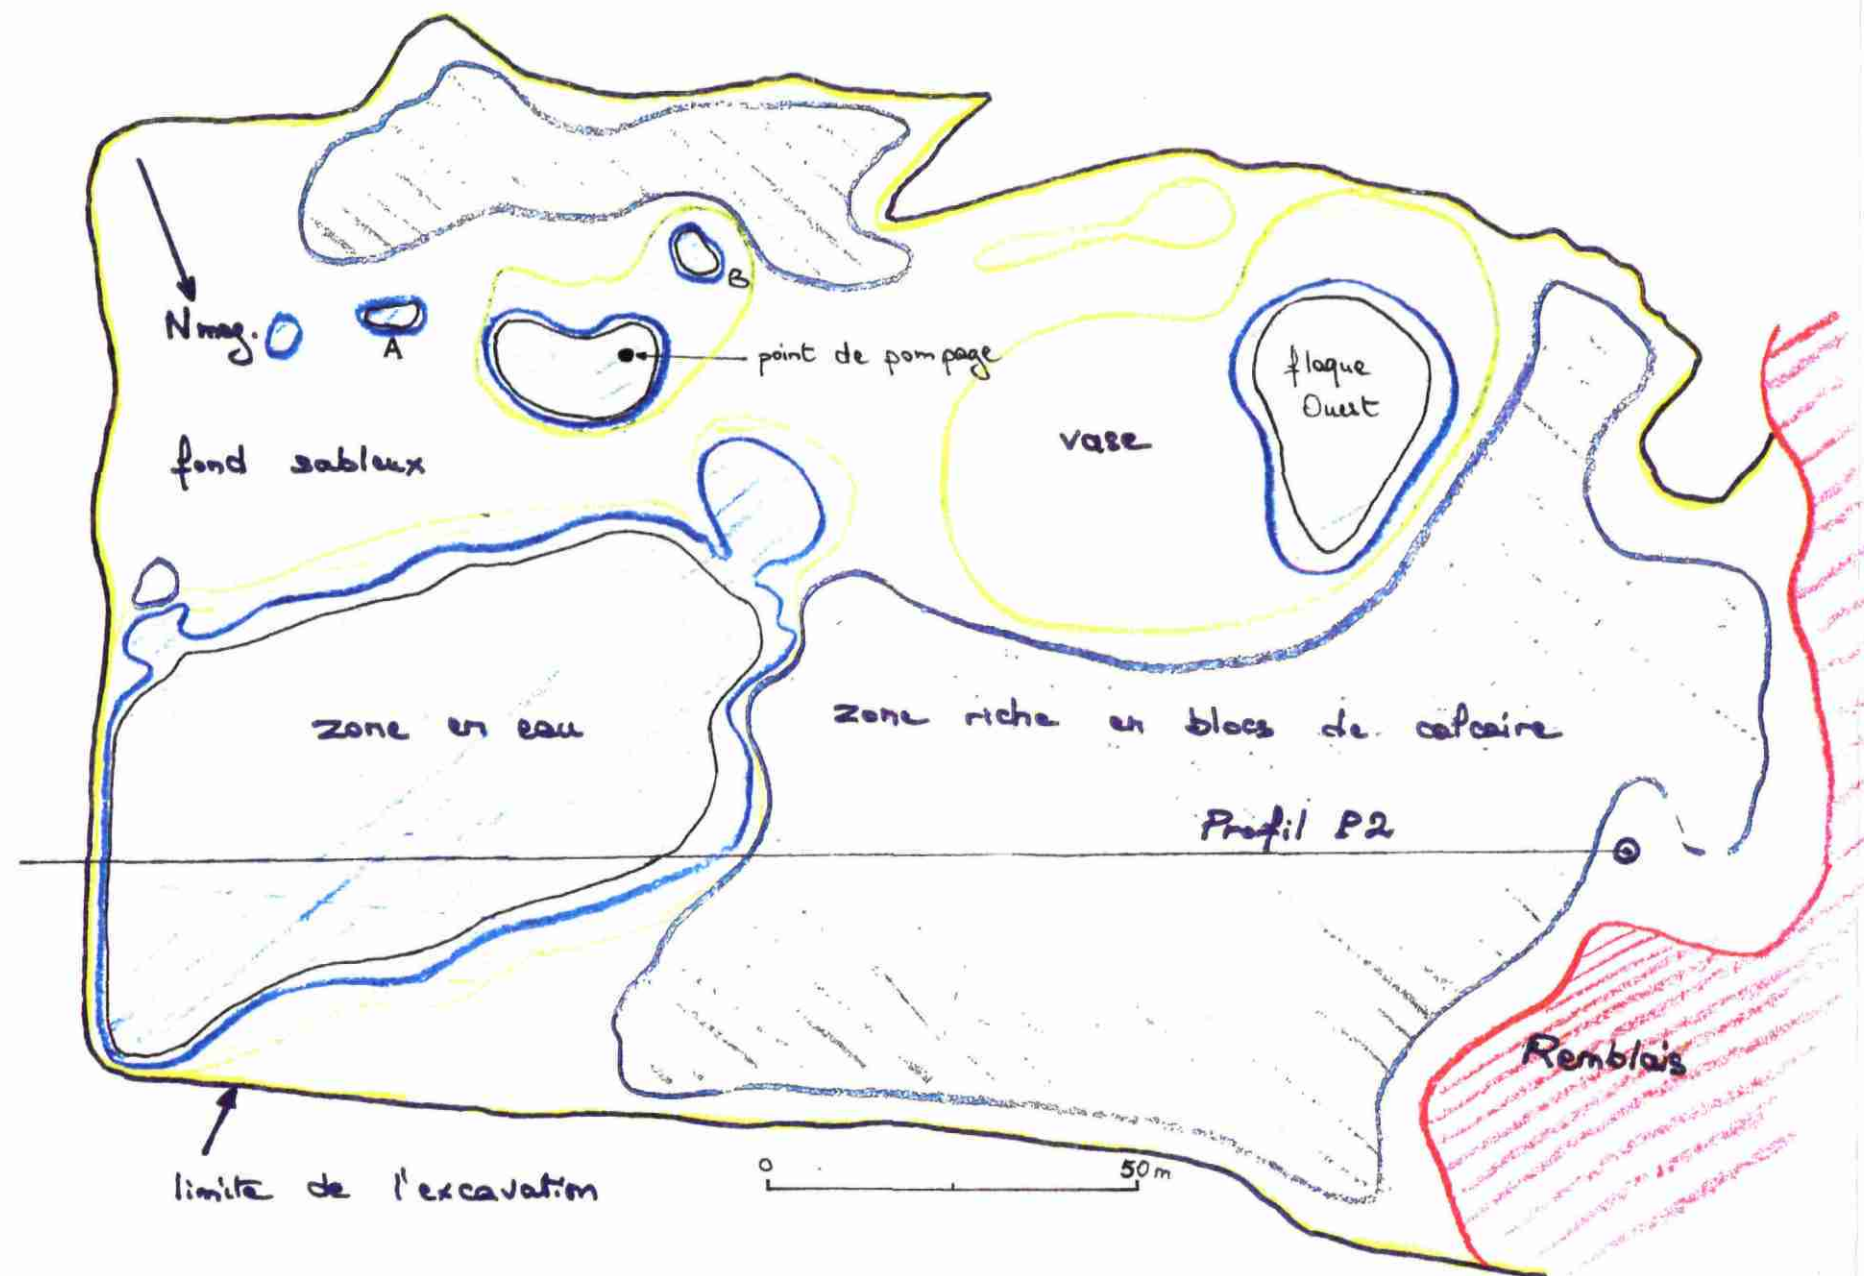 N mag.
A
B
point de pompage
flaque
Ouest
vase
fond sableux
zone en eau
zone riche en blocs de calcaire
Profil P2
Remblais
0
50 m
limite de l'excavation